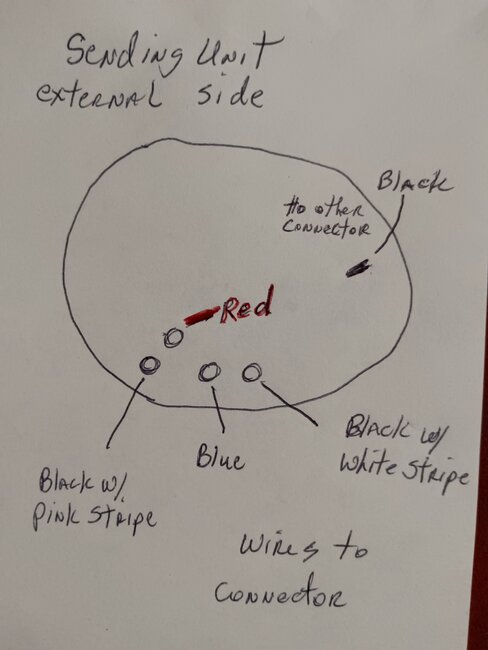 Sending Unit
external side
Black
to other
connector
Red
Black w/
White Stripe
Blue
Black w/
pink stripe
Wires to
Connector